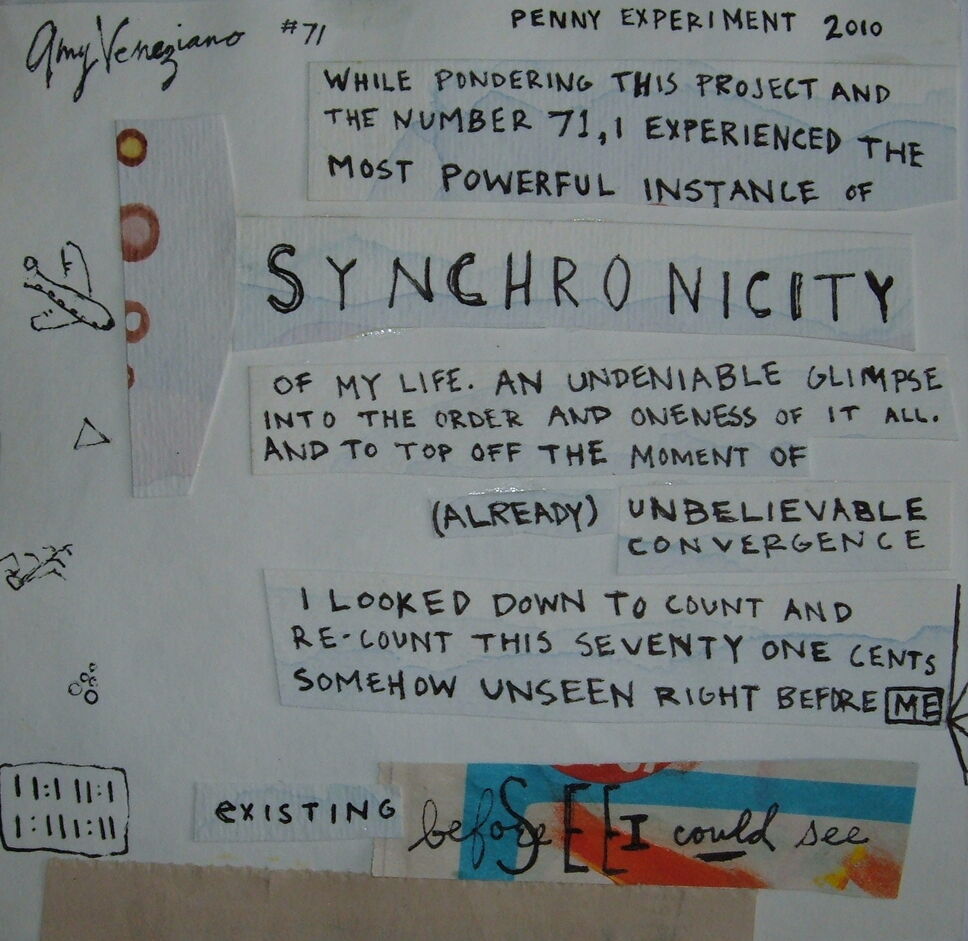 Amy Veneziano #71
PENNY EXPERIMENT 2010
WHILE PONDERING THIS PROJECT AND
THE NUMBER 71, I EXPERIENCED THE
MOST POWERFUL INSTANCE OF
SYNCHRONICITY
OF MY LIFE. AN UNDENIABLE GLIMPSE
INTO THE ORDER AND ONENESS OF IT ALL.
AND TO TOP OFF THE MOMENT OF
(ALREADY) UNBELIEVABLE
CONVERGENCE
I LOOKED DOWN TO COUNT AND
RE-COUNT THIS SEVENTY ONE CENTS
SOMEHOW UNSEEN RIGHT BEFORE ME
11:11 11:11
1:11:11:11
existing before SEE I could see